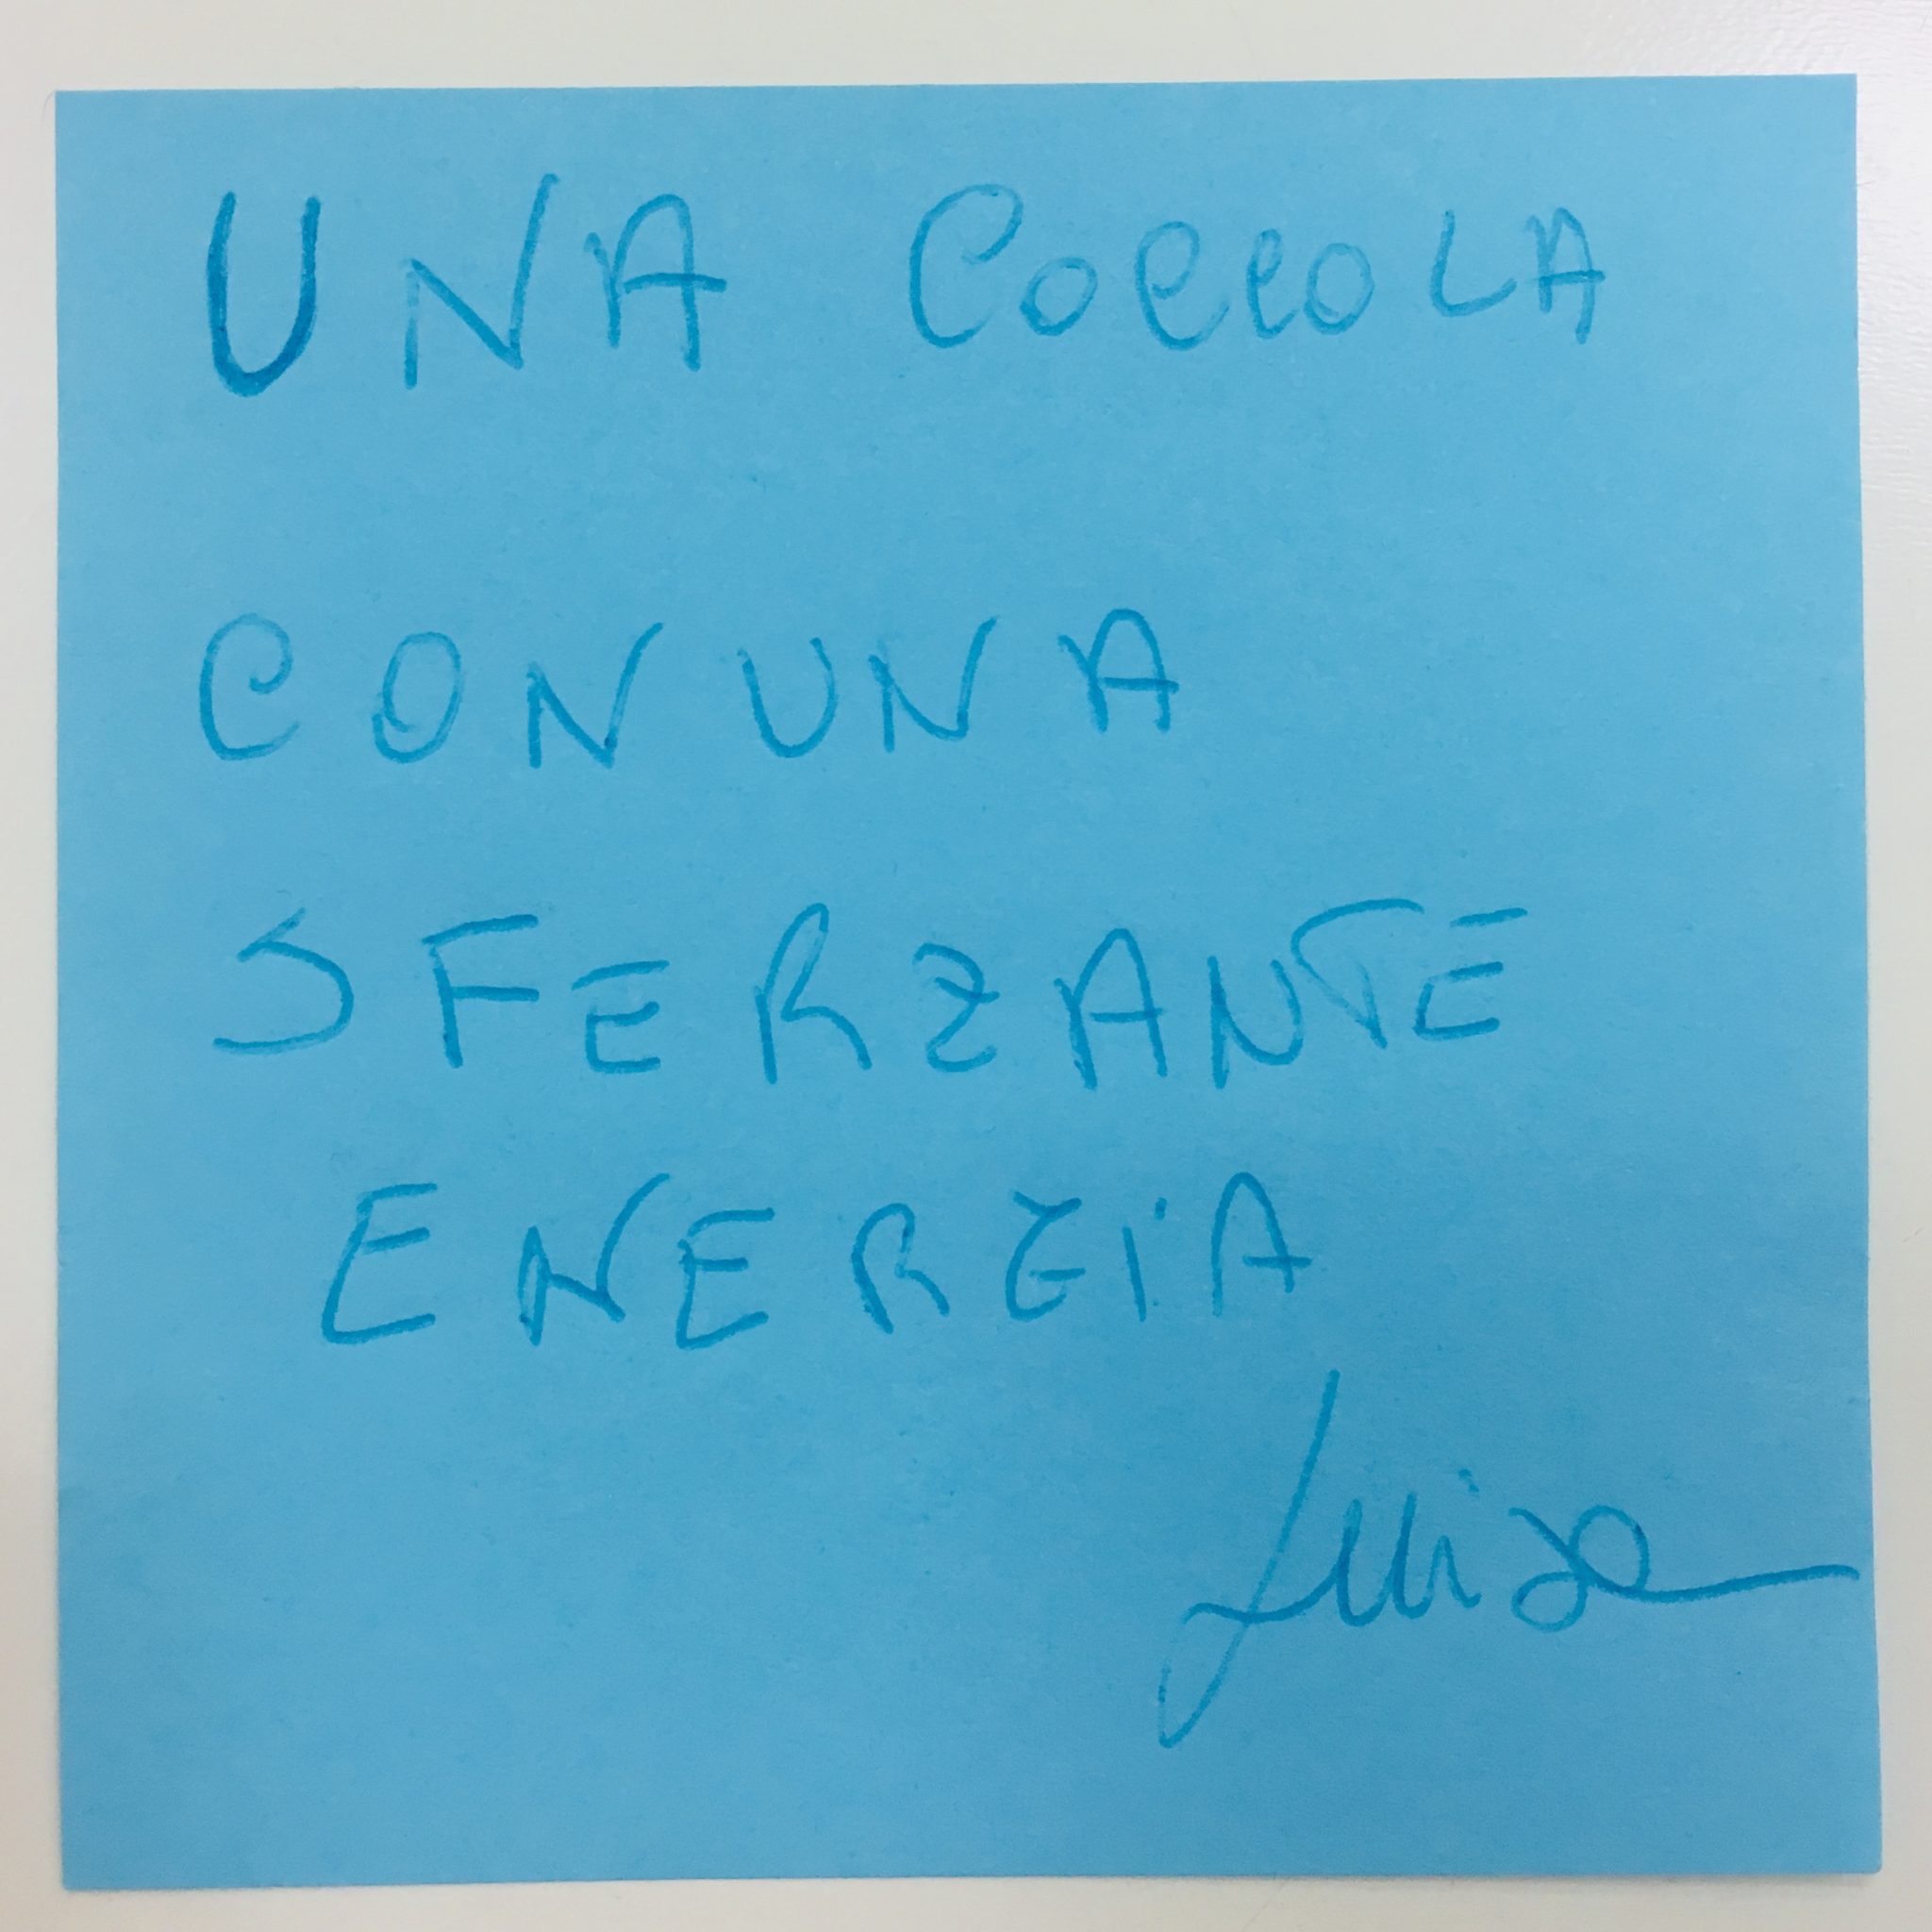 UNA COCCOLA
CON UNA
SFERZANTE
ENERGIA
Luisa